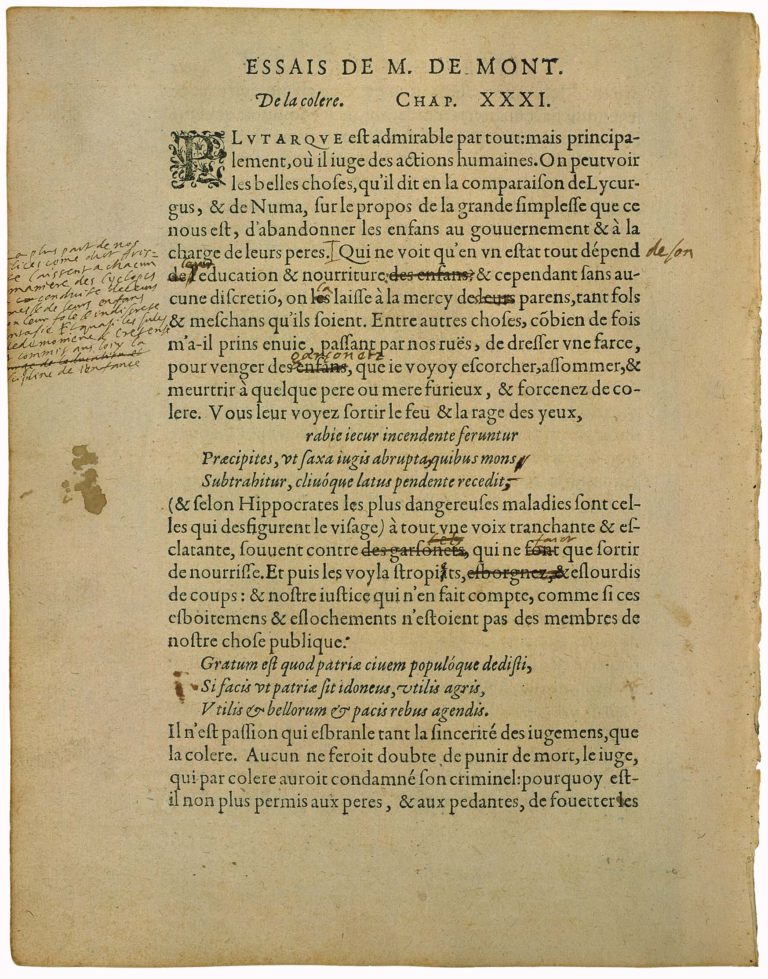 ESSAIS DE M. DE MONT.
De la colere. CHAP. XXXI.
PLVTARQVE eſt admirable par tout:mais principa-
lement,où il iuge des actions humaines.On peut voir
les belles choſes,qu'il dit en la comparaiſon de Lycur-
gus, & de Numa, ſur le propos de la grande ſimpleſſe que ce
nous eſt, d'abandonner les enfans au gouuernement & à la
charge de leurs peres. Qui ne voit qu'en vn eſtat tout dépend de son
education & nourriture des enfans? & cependant ſans au-
cune diſcretiõ, on les laiſſe à la mercy des leurs parens,tant fols
& meſchans qu'ils ſoient. Entre autres choſes, cõbien de fois
m'a-il prins enuie, paſſant par nos ruës, de dreſſer vne farce,
garçonetz
pour venger des enfans, que ie voyoy eſcorcher,aſſommer,&
meurtrir à quelque pere ou mere furieux, & forcenez de co-
lere. Vous leur voyez ſortir le feu & la rage des yeux,
rabie iecur incendente feruntur
Præcipites, vt ſaxa iugis abrupta,quibus mons
Subtrahitur, cliuóque latus pendente recedit,
(& ſelon Hippocrates les plus dangereuſes maladies ſont cel-
les qui deſfigurent le viſage) à tout vne voix tranchante & eſ-
clatante, ſouuent contre des garſonets, qui ne font que ſortir
de nourriſſe.Et puis les voyla ſtropits, eſborgnez,& eſlourdis
de coups : & noſtre iuſtice qui n'en fait compte, comme ſi ces
eſboitemens & eſlochements n'eſtoient pas des membres de
noſtre choſe publique.
Gratum eſt quod patriæ ciuem populóque dediſti,
Si facis vt patriæ ſit idoneus, vtilis agris,
Vtilis & bellorum & pacis rebus agendis.
Il n'eſt paſſion qui eſbranle tant la ſincerité des iugemens,que
la colere. Aucun ne feroit doubte de punir de mort, le iuge,
qui par colere auroit condamné ſon criminel:pourquoy eſt-
il non plus permis aux peres, & aux pedantes, de fouetter les
plus part de nos
come dict
laissent a chacun
maniere des cyclopes
conduite de leurs
de leurs enfans
leur fole & indiscrete
Et quasi les sules
& cretense
commis aus loix la
de l'enfance